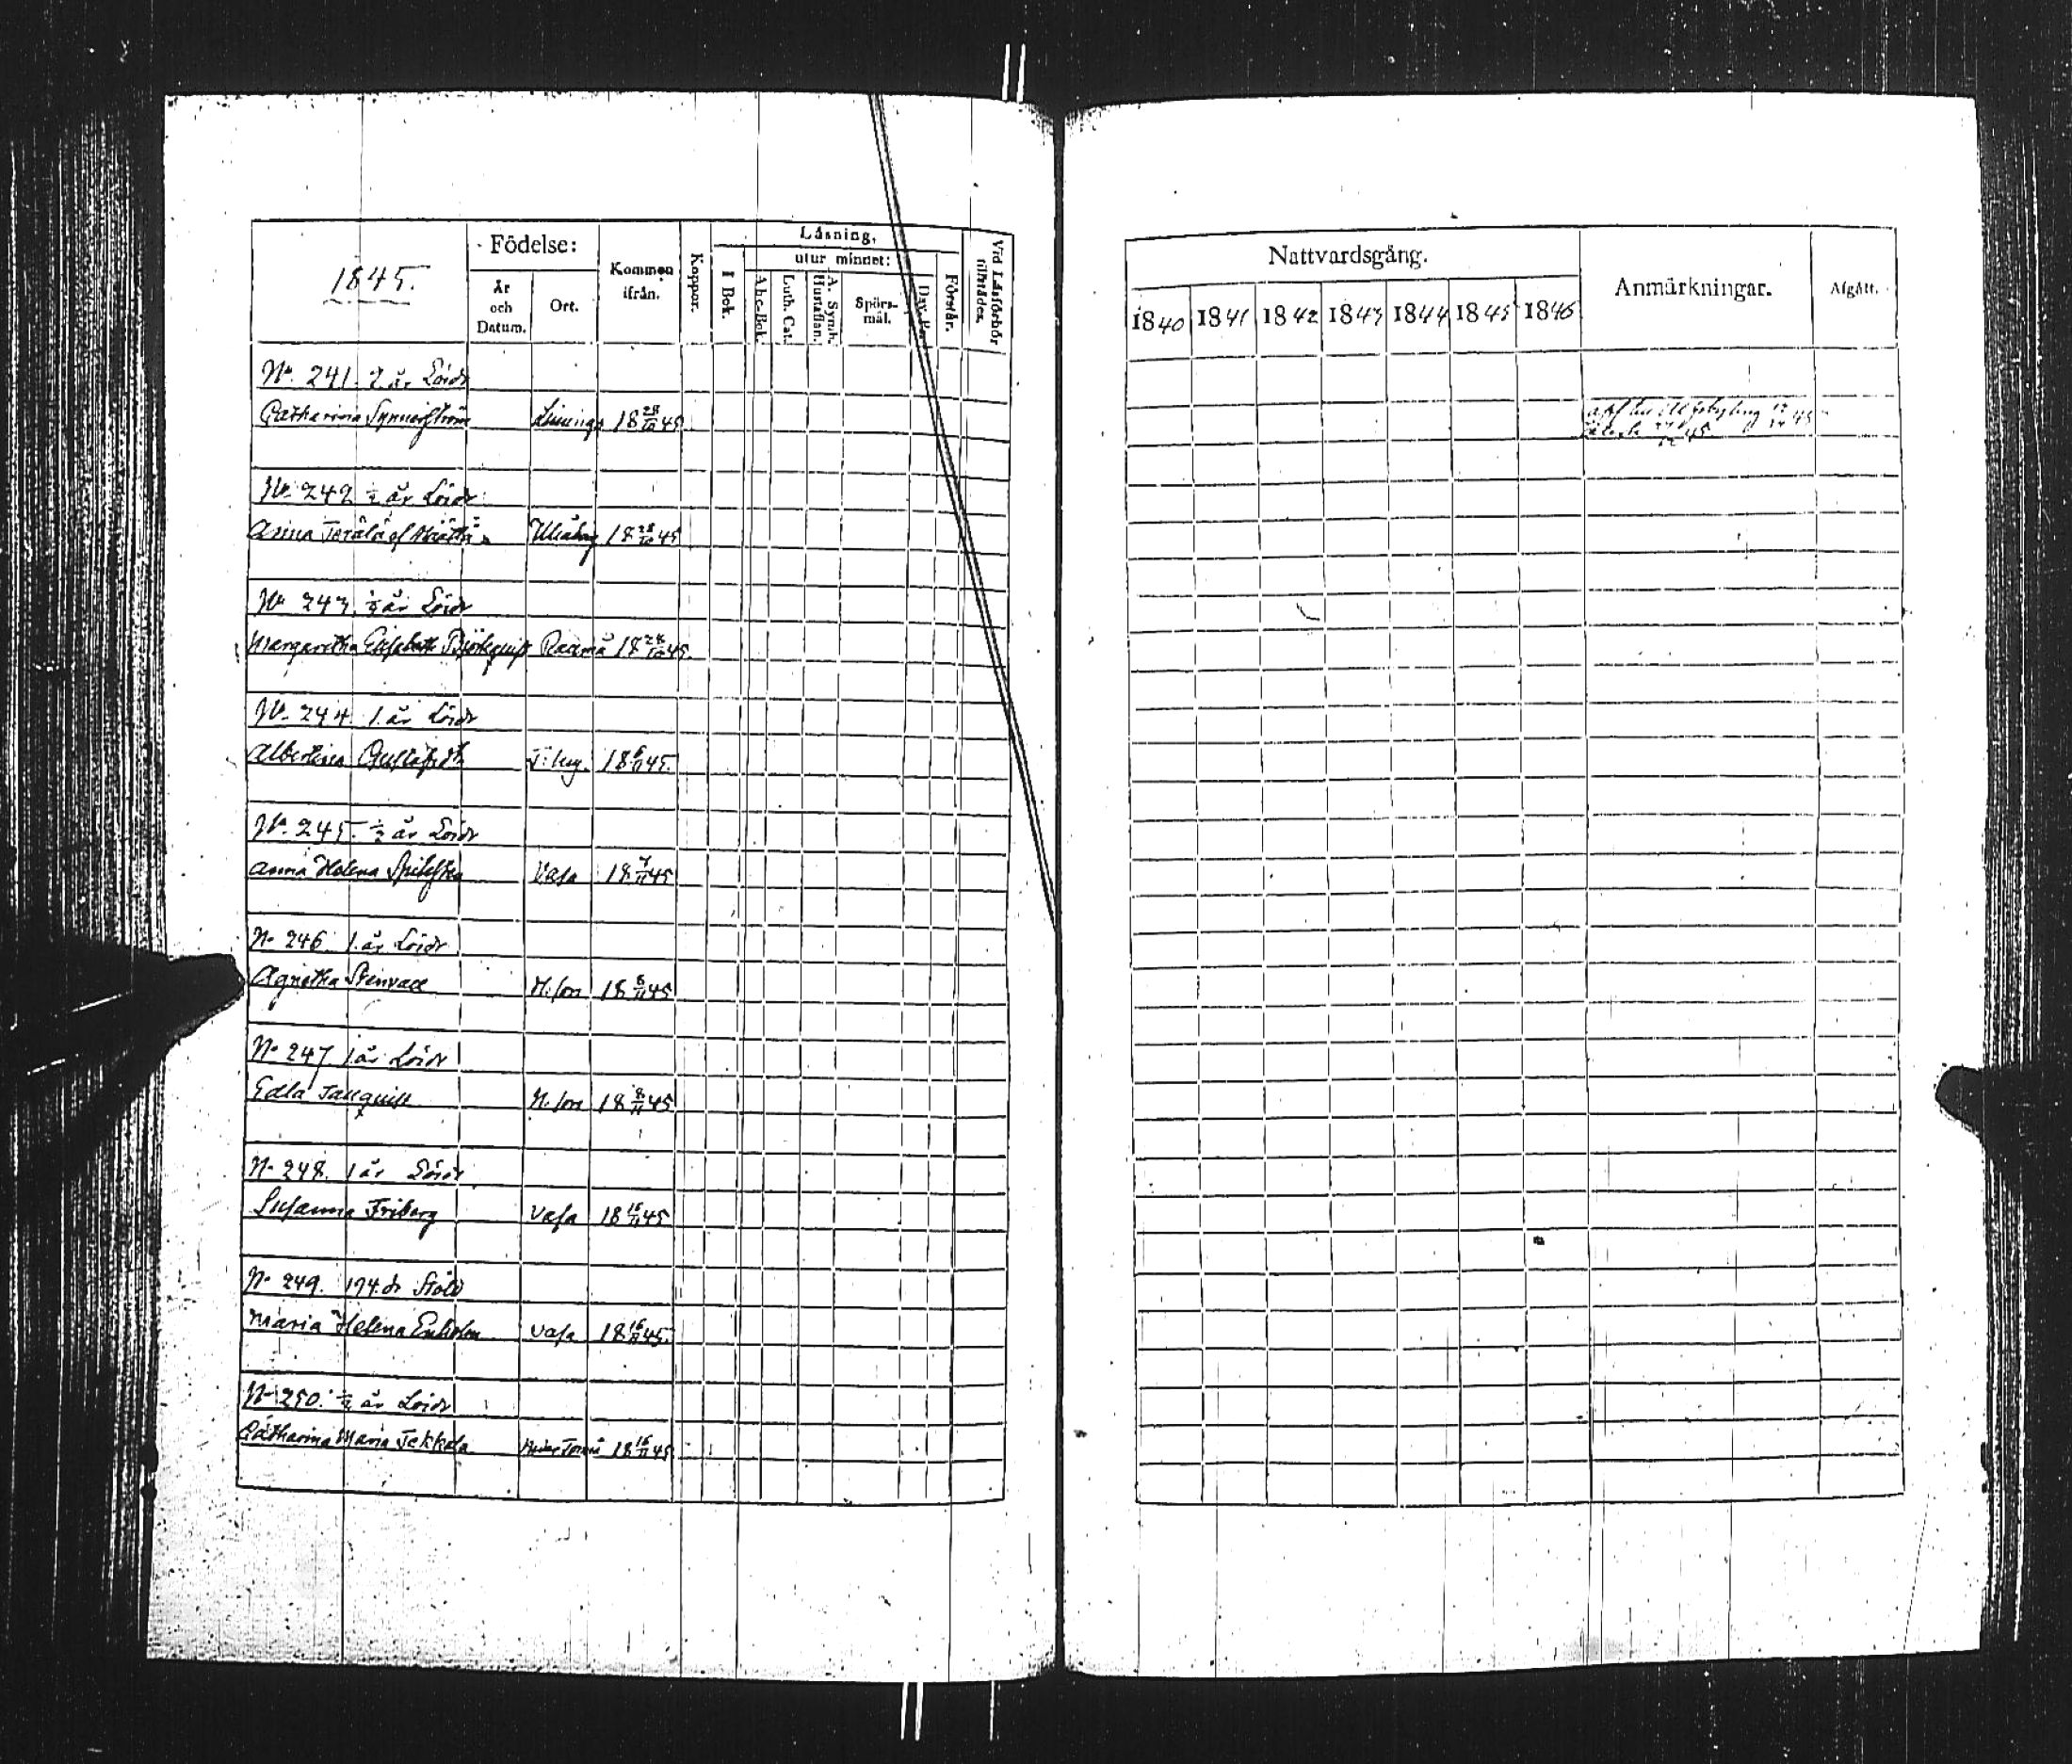 1845.
Födelse:
År och Datum.
Ort.
Kommen ifrån.
Koppor.
Läsning,
utur minnet:
I Bok.
Abc-Bok.
Luth. Cat.
A. Symb. Hustaflan.
Spörsmål.
Dav. Ps.
Förstår.
Vid Läsförhör tillstädes.
Nattvardsgång.
1840 1841 1842 1843 1844 1845 1846
Anmärkningar.
Afgått.
No. 241. 2 år Lösdr
Catharina 18 28/10 45
No. 242 ½ år Lösdr
Anna 18 28/10 45
No. 243. ½ år Lösdr
Margaretha Elisabeth Björkqvist 18 28/10 45.
No. 244. 1 år Lösdr
Albertina Gustafsdr 18 6/11 45.
No. 245. ½ år Lösdr
Anna Helena Vasa 18 7/11 45
No 246. 1 år Lösdr
Agnetha Stenvall H.fors 18 8/11 45
No 247 1 år Lösdr
Edla H.fors 18 8/11 45
No 248. 1 år Lösdr
Susanna Friberg Vasa 18 15/11 45
No 249. 174 dr Stöld
Maria Helena Enholm Vasa 18 15/11 45.
No 250. ½ år Lösdr
Catharina Maria Jekkola Torneå 18 15/11 45.